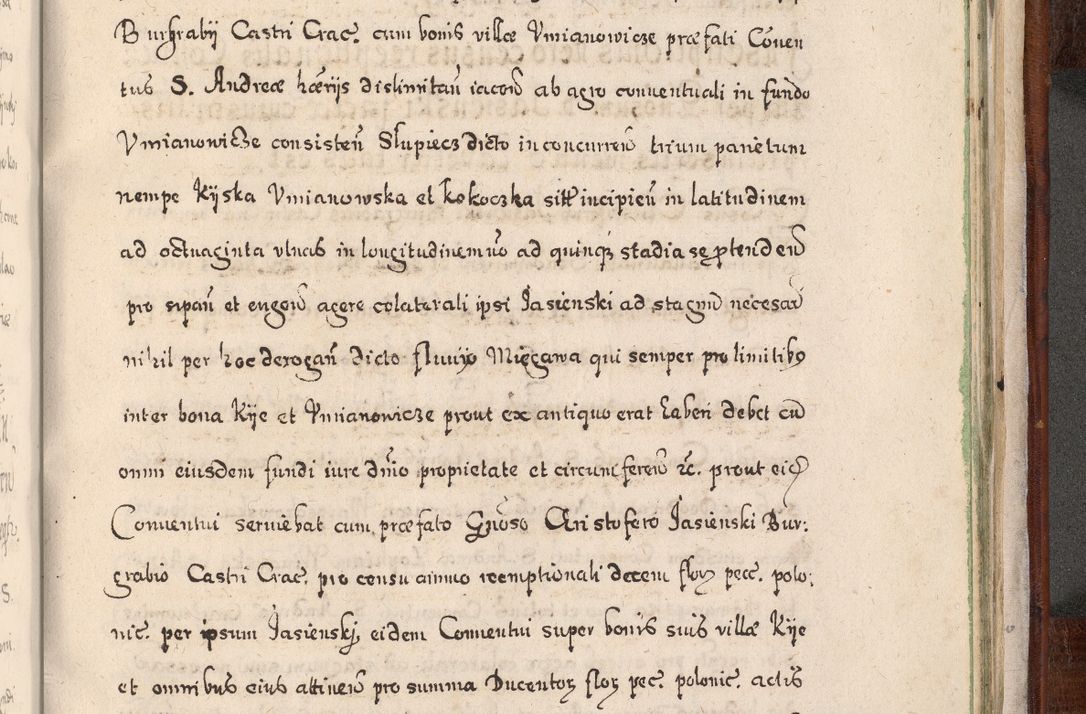 Burgrabij Castri Crac. cum bonis villæ Vmianowicze præfati Conven
tus S. Andreæ hærijs dislimitan̄ iacen̄ ab agro conventuali in fundo
Vmianowicze consisten̄ Słupiecz dicto in concurren̄ trium parietum
nempe Kijska Vmianowska et kokoczka sitt incipien̄ in latitudinem
ad octuaginta vlnas in longitudinem vō ad quinqꝫ stadia sę ꝑtenden̄
pro sipan̄ et engen̄ agere colaterali ipsi Jasienski ad stagnū necesar̄
nihil per hoc derogan̄ dicto fluvijo Mięgawa qui semper pro limitibꝫ
inter bona Kije et Vmianowicze prout ex antiquo erat haberi debet cū
omni eiusdem fundi iure dn̄io proprietate et circumferen̄ &c. prout eid
Conventui serviebat cum præfato Gn̄oso Christofero Jasienski Bur:
grabio Castri Crac. pro censu annuo reemptionali decem flor pecc. polo:
nic. per ipsum Jasienskj eidem Conventui super bonis suis villæ Kije
et omnibus eius attinen̄ pro summa Ducentor flor pec. polonic. actis